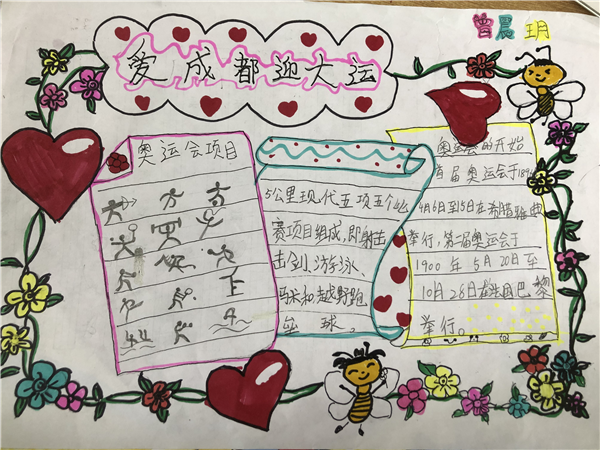 曾晨玥
爱成都迎大运
奥运会项目
5公里现代五项五个比
赛项目组成,即射击
击剑、游泳、
马术和越野跑
垒球。
奥运会的开始
首届奥运会于189
4月6日到15日在希腊雅典
举行,第二届奥运会于
1900年5月20日至
10月28日在法国巴黎
举行。